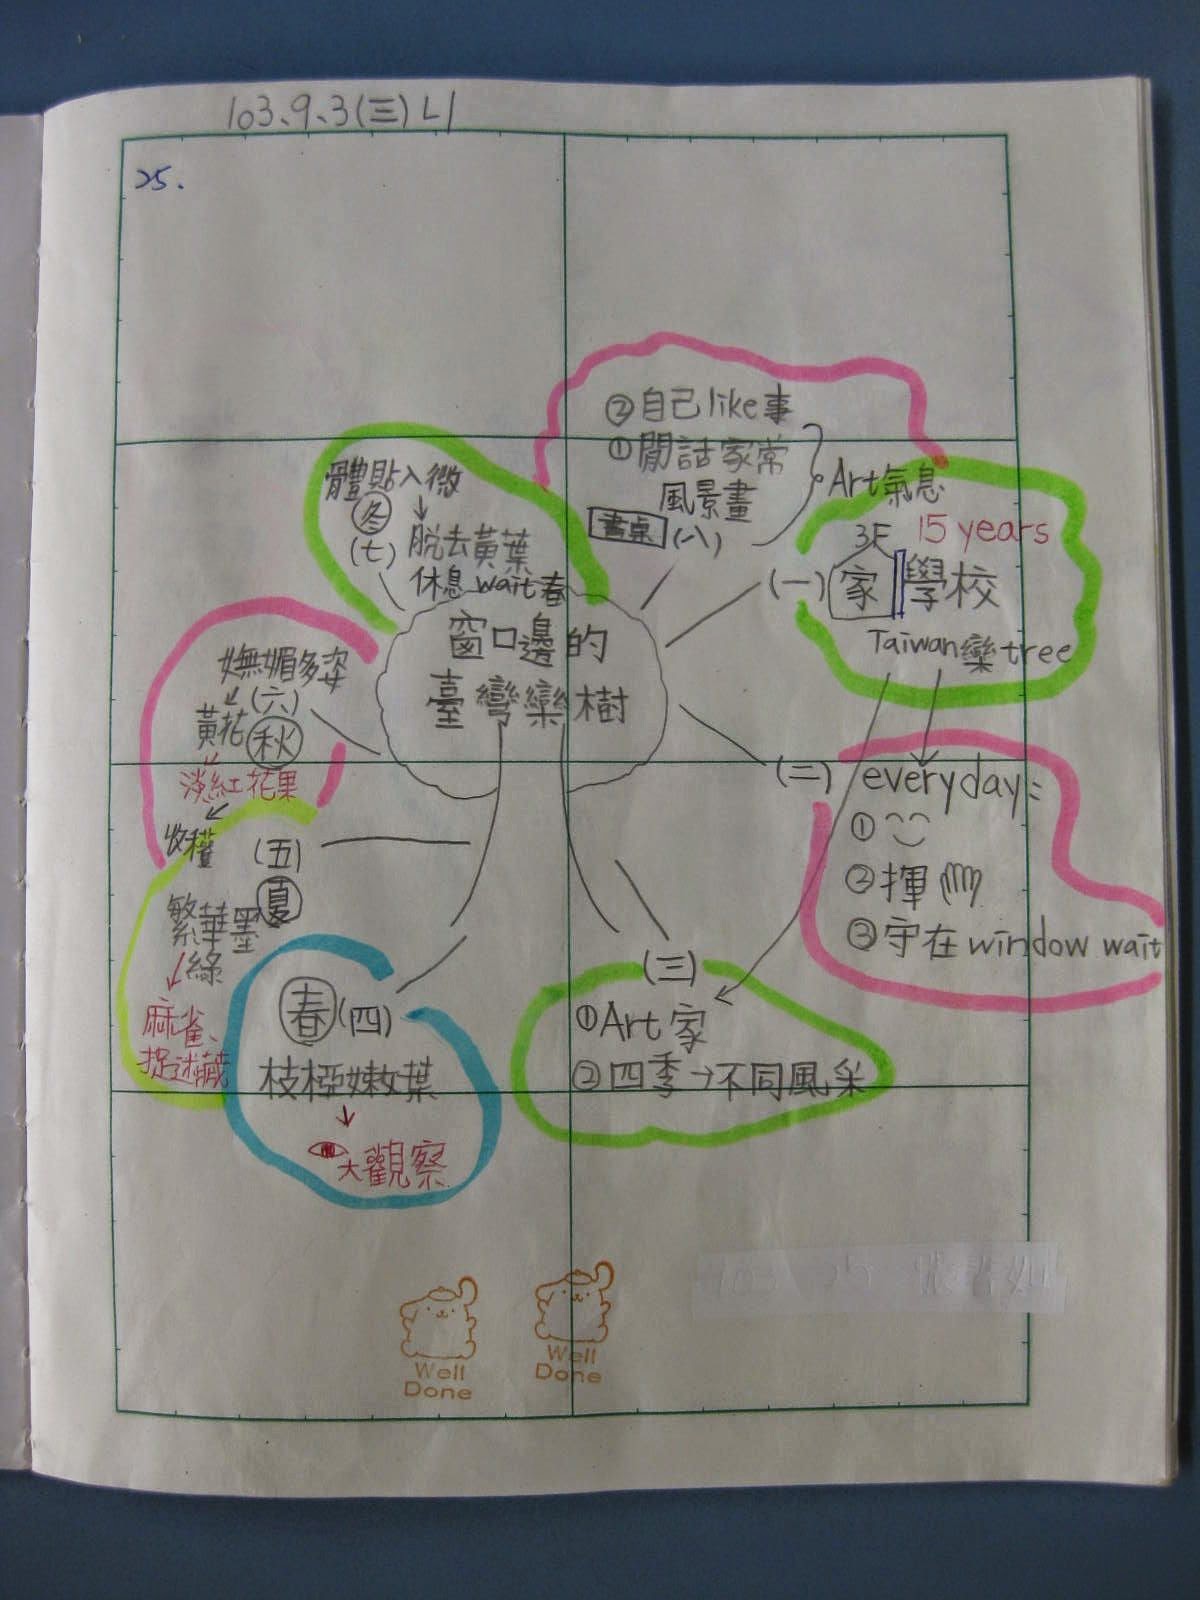 103、9、3(三) L1
25.
窗口邊的
臺彎欒樹
(一)
3F 15 years
家 學校
Taiwan欒tree
(二)
everyday:
①
②揮
③守在window wait
(三)
①Art家
②四季→不同風采
春(四)
枝椏嫩葉
↓
大觀察
(五)
夏
繁華墨
綠
麻雀、
捉迷藏
嫵媚多姿
(六)
黃花 秋
淡紅花果
收穫
體貼入微
冬 ↓
(七) 脫去黃葉
休息 wait春
②自己like事
①閒話家常
風景畫
書桌 (八)
Art氣息
Well
Done
Well
Done